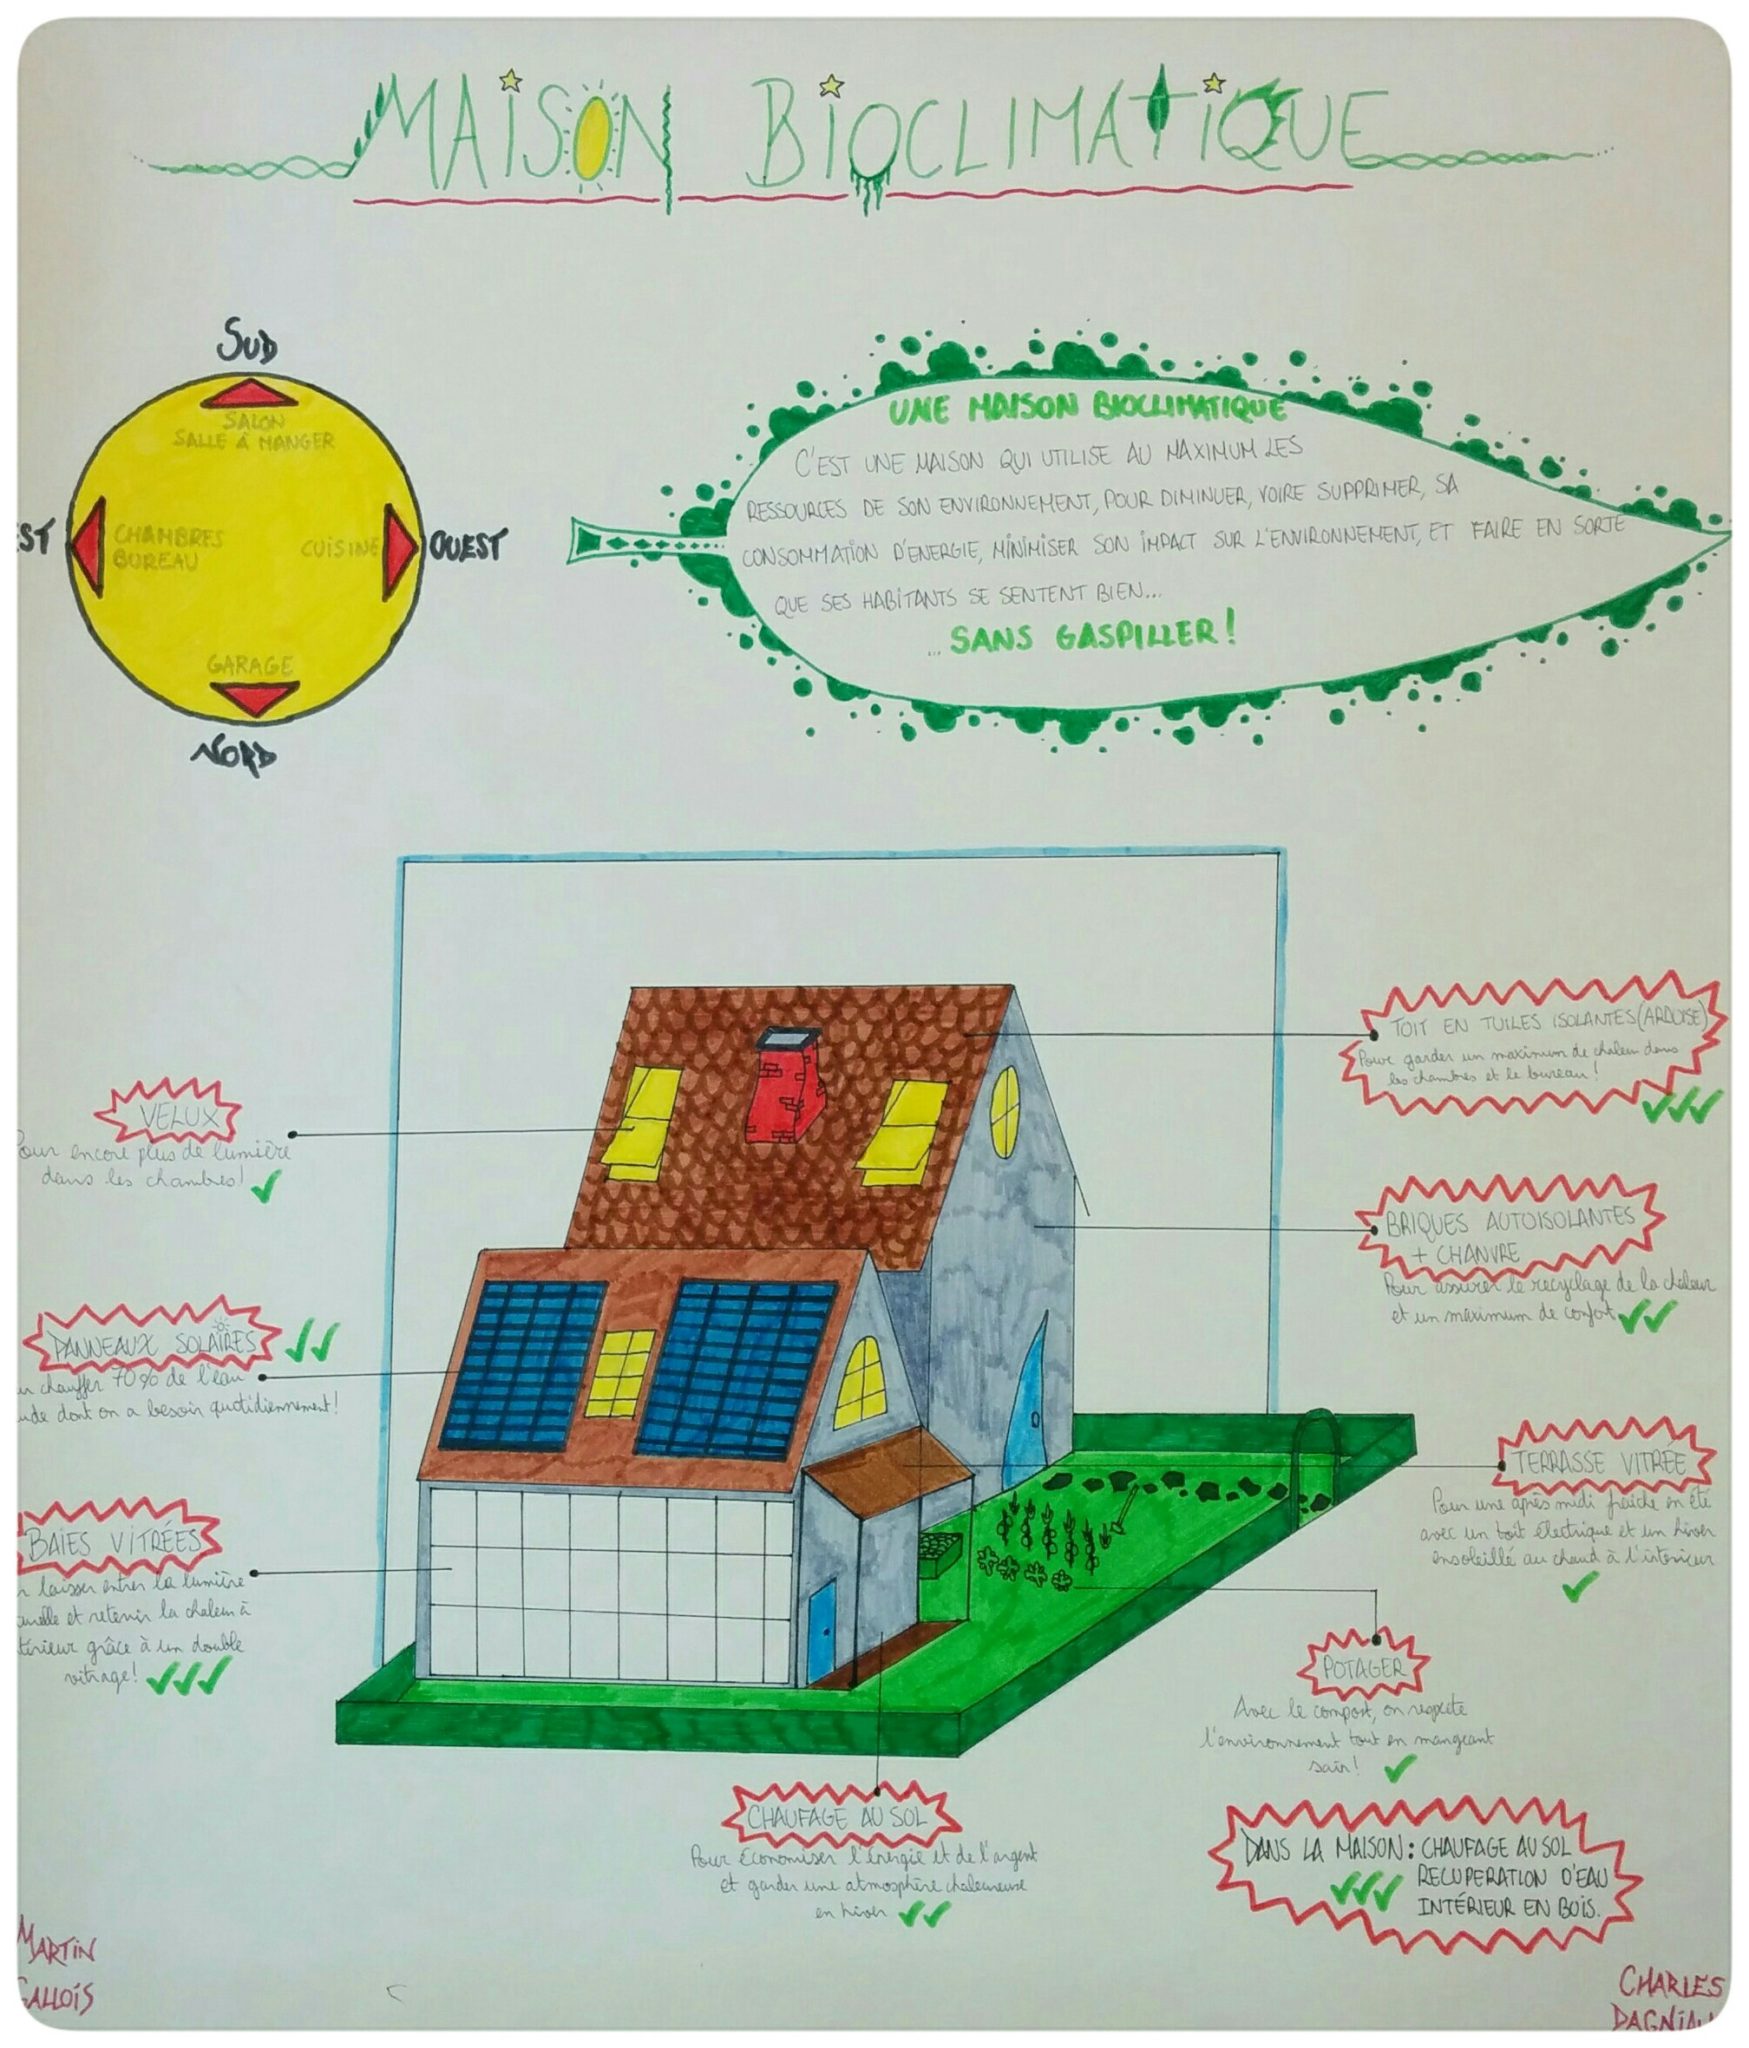 MAISON BIOCLIMATIQUE
SUD
SALON
SALLE À MANGER
ST
CHAMBRES
BUREAU
CUISINE
OUEST
GARAGE
NORD
UNE MAISON BIOCLIMATIQUE
C'EST UNE MAISON QUI UTILISE AU MAXIMUM LES
RESSOURCES DE SON ENVIRONNEMENT, POUR DIMINUER, VOIRE SUPPRIMER, SA
CONSOMMATION D'ENERGIE, MINIMISER SON IMPACT SUR L'ENVIRONNEMENT, ET FAIRE EN SORTE
QUE SES HABITANTS SE SENTENT BIEN...
... SANS GASPILLER !
VELUX
our encore plus de lumière
dans les chambres!
PANNEAUX SOLAIRES
chauffer 70% de l'eau
ude dont on a besoin quotidiennement!
BAIES VITRÉES
r laisser entrer la lumière
urelle et retenir la chaleur à
térieur grâce à un double
vitrage!
TOIT EN TUILES ISOLANTES (ARDOISE)
Pour garder un maximum de chaleur dans
les chambres et le bureau!
BRIQUES AUTOISOLANTES
+ CHANVRE
Pour assurer le recyclage de la chaleur
et un maximum de confort
TERRASSE VITRÉE
Pour une après midi fraiche en été
avec un toit électrique et un hiver
ensoleillé au chaud à l'intérieur
POTAGER
Avec le compost, on respecte
l'environnement tout en mangeant
sain!
CHAUFAGE AU SOL
Pour économiser l'énergie et de l'argent
et garder une atmosphère chaleureuse
en hiver
DANS LA MAISON : CHAUFAGE AU SOL
RECUPERATION D'EAU
INTÉRIEUR EN BOIS.
MARTIN
GALLOIS
CHARLES
DAGNIAU